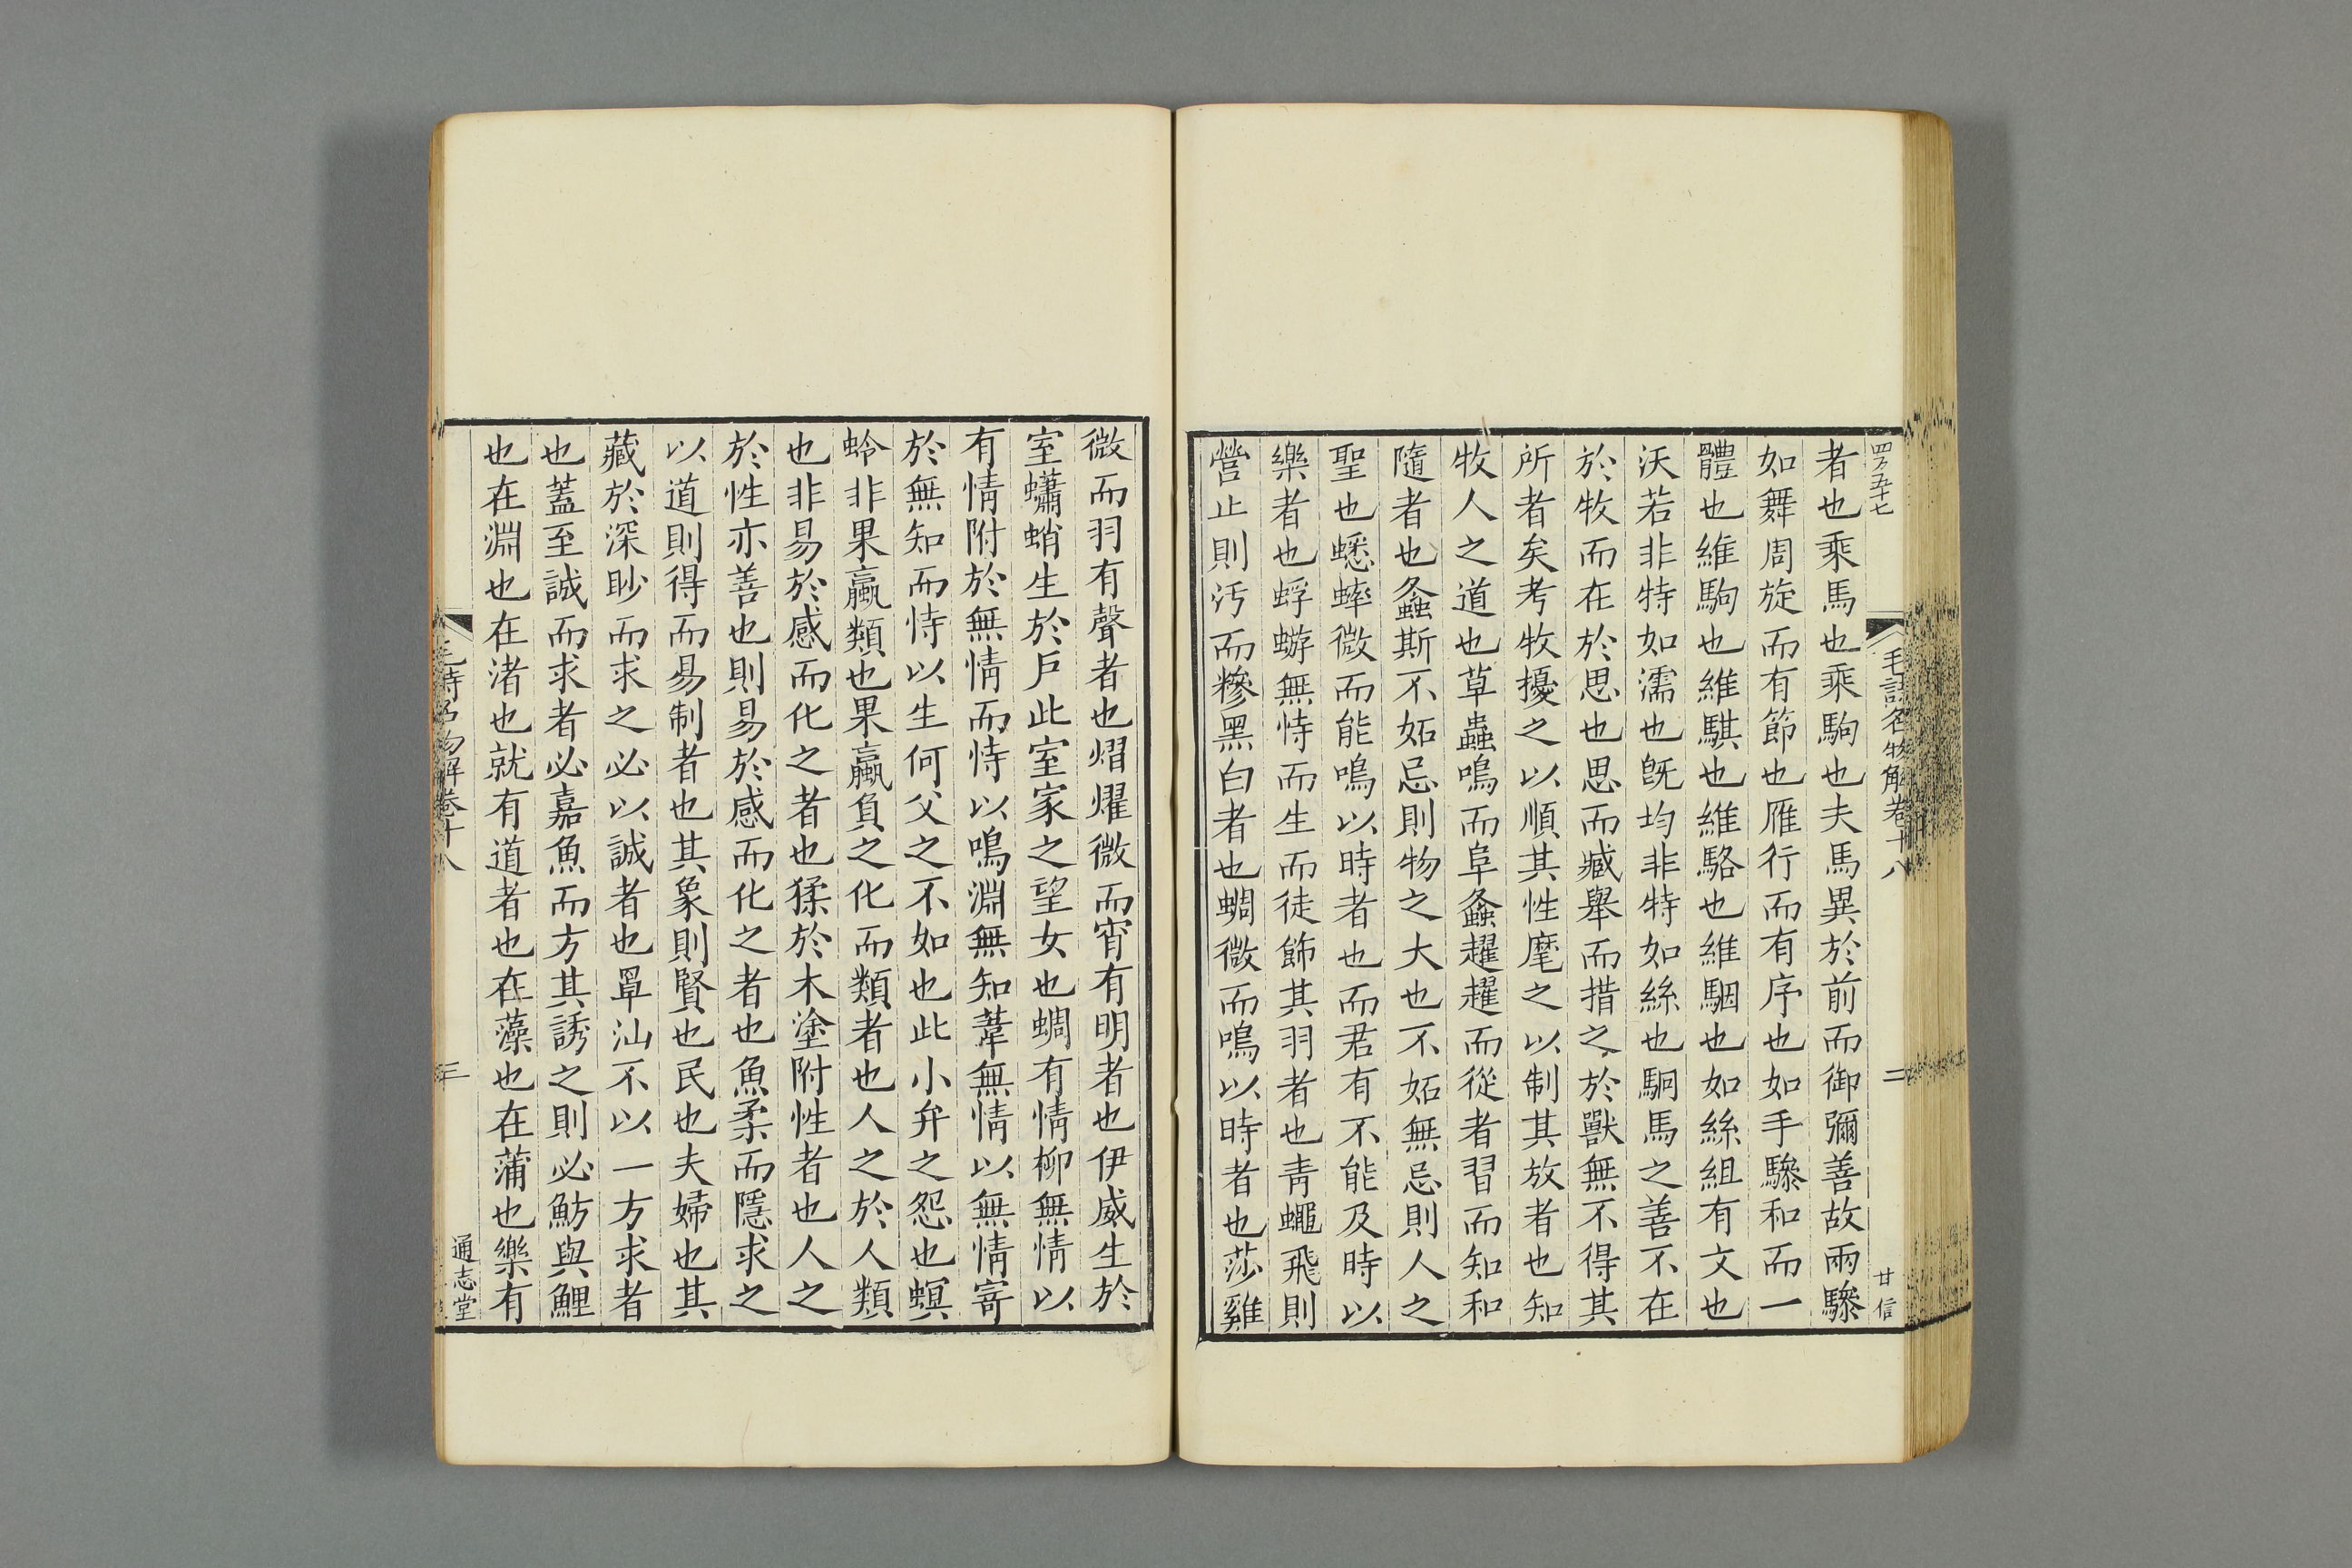 四百五十七
毛詩名物解卷十八
二
甘信
者也乘馬也乘駒也夫馬異於前而御彌善故兩驂
如舞周旋而有節也雁行而有序也如手驂和而一
體也維駒也維騏也維駱也維駰也如絲組有文也
沃若非特如濡也旣均非特如絲也駉馬之善不在
於牧而在於思也思而臧舉而措之於獸無不得其
所者矣考牧擾之以順其性麾之以制其放者也知
牧人之道也草蟲鳴而阜螽趯趯而從者習而知和
隨者也螽斯不妬忌則物之大也不妬無忌則人之
聖也蟋蟀微而能鳴以時者也而君有不能及時以
樂者也蜉蝣無恃而生而徒飾其羽者也青蠅飛則
營止則汚而糝黑白者也蜩微而鳴以時者也莎雞
微而羽有聲者也熠燿微而宵有明者也伊威生於
室蠨蛸生於戶此室家之望女也蜩有情柳無情以
有情附於無情而恃以鳴淵無知葦無情以無情寄
於無知而恃以生何父之不如也此小弁之怨也螟
蛉非果蠃類也果蠃負之化而類者也人之於人類
也非易於感而化之者也猱於木塗附性者也人之
於性亦善也則易於感而化之者也魚柔而隱求之
以道則得而易制者也其象則賢也民也夫婦也其
藏於深眇而求之必以誠者也罩汕不以一方求者
也蓋至誠而求者必嘉魚而方其誘之則必魴與鯉
也在淵也在渚也就有道者也在藻也在蒲也樂有
毛詩名物解卷十八
通志堂